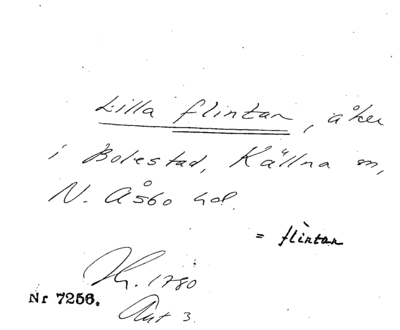 Lilla flintan, åker
i Bolestad, Källna sn,
N. Åsbo hd.
= flìntan
Hr. 1780
Nr 7256. Akt 3.